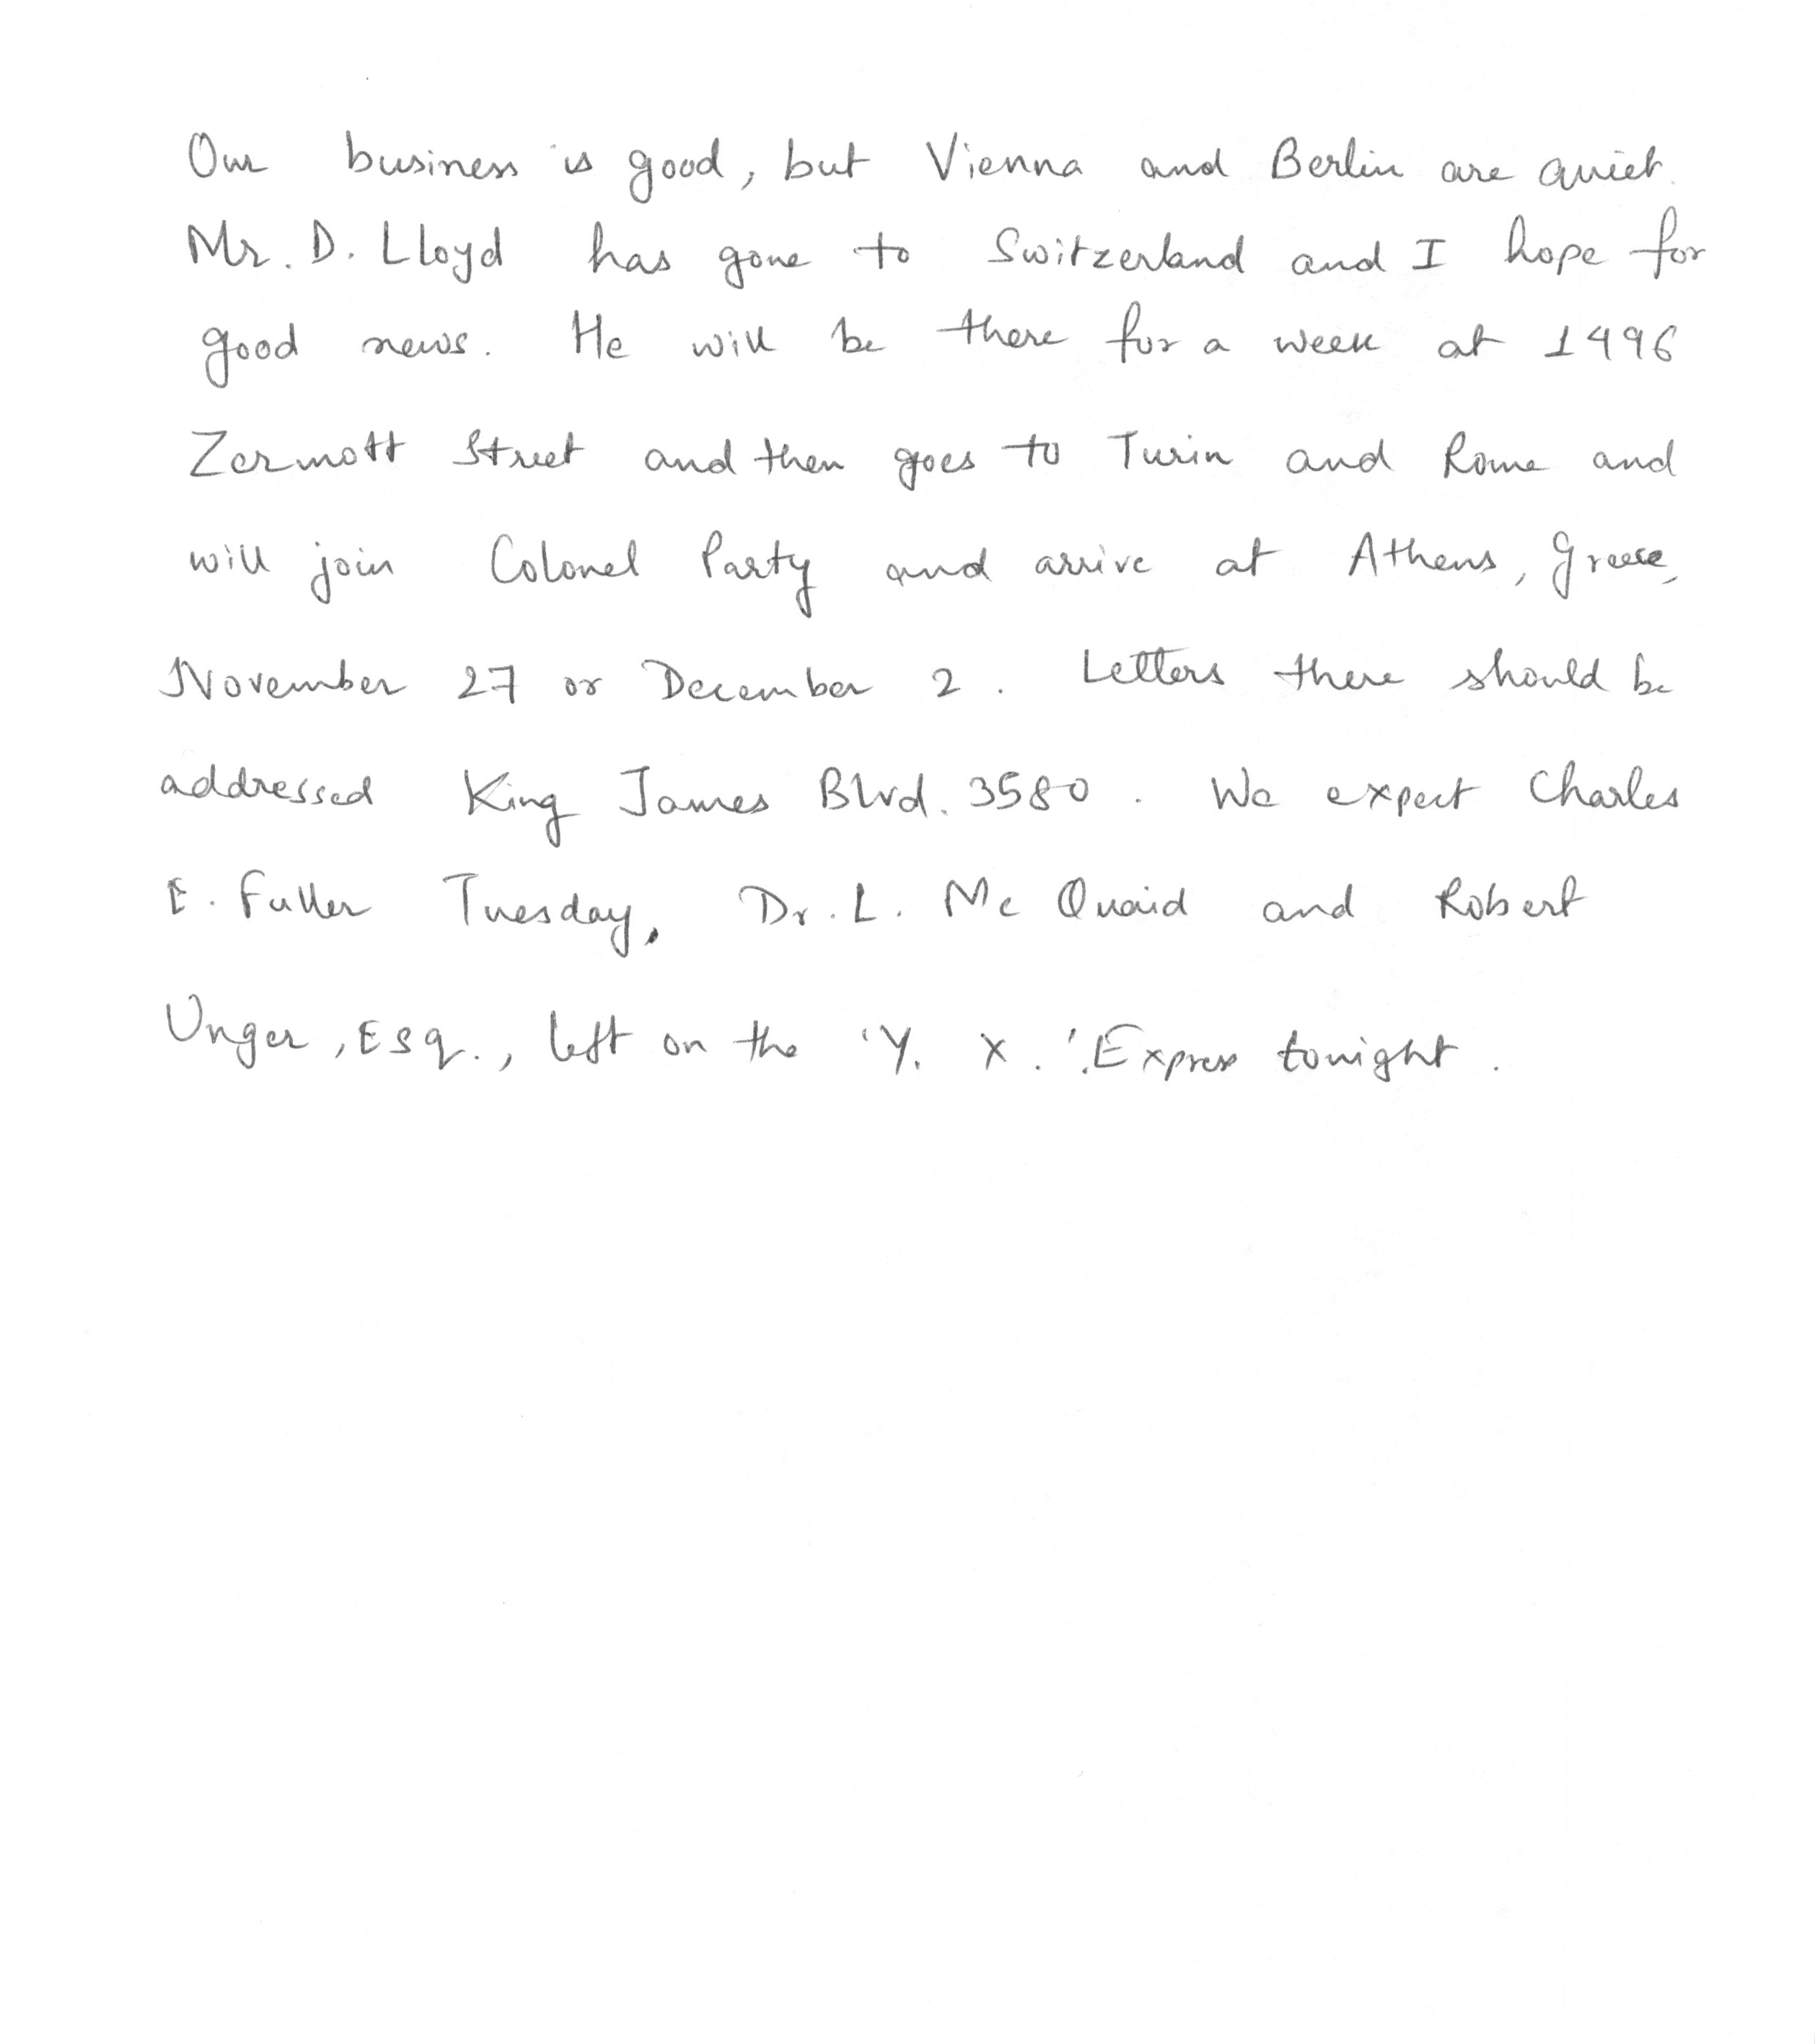 Our business is good, but Vienna and Berlin are quiet.
Mr. D. Lloyd has gone to Switzerland and I hope for
good news. He will be there for a week at 1496
Zermott Street and then goes to Turin and Rome and
will join Colonel Party and arrive at Athens, Greece,
November 27 or December 2. Letters there should be
addressed King James Blvd. 3580. We expect Charles
E. Fuller Tuesday, Dr. L. Mc Quaid and Robert
Unger, Esq., left on the 'Y. X.' Express tonight.